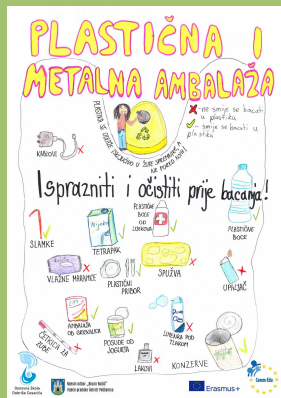 PLASTIČNA I
METALNA AMBALAŽA
PLASTIKA SE ODLAŽE ISKLJUČIVO U ŽUTE SPREMNIKE, A
NE PORED NJIH!
✗ -ne smije se bacati
u plastiku
✓ - smije se bacati u
plastiku
KABLOVI
Isprazniti i očistiti prije bacanja!
PLASTIČNE
BOCE
OD
LIJEKOVA
SLAMKE
TETRAPAK
PLASTIČNE
BOCE
VLAŽNE MARAMICE
PLASTIČNI
PRIBOR
SPUŽVA
UPALJAČ
AMBALAŽA
OD
ČETKICA ZA
ZUBE
POSUDE OD
JOGURTA
LAKOVI
POD
TLAKOM
KONZERVE
Osnovna škola
Dobriše Cesarića
Erasmus+